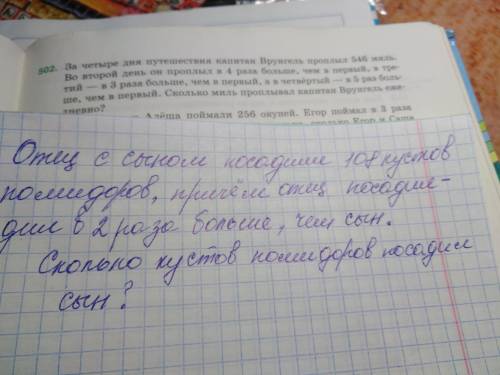 802. За четыре дня путешествия капитан Врунгель проплыл 546 миль.
Во второй день он проплыл в 4 раза больше, чем в первый, в тре-
тий — в 3 раза больше, чем в первый, а в четвёртый — в 5 раз боль-
ше, чем в первый. Сколько миль проплывал капитан Врунгель еже-
дневно?
Алёша поймали 256 окуней. Егор поймал в 3 раза
сколько Егор и Саша
Отец с сыном посадили 108 кустов
помидоров, причём отец посадил-
дил в 2 раза больше, чем сын.
Сколько кустов помидоров посадил
сын?